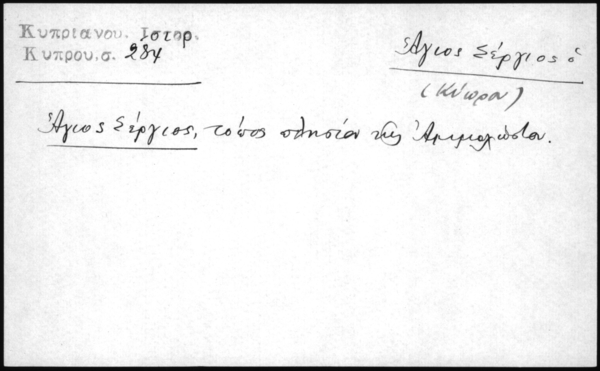 Κυπριανου. Ιστορ.
Κυπρου, σ. 284
Ἅγιος Σέργιος ὁ
(Κύπρου)
Ἅγιος Σέργιος, τόπος πλησίον τῆς Ἀμμοχώστου.